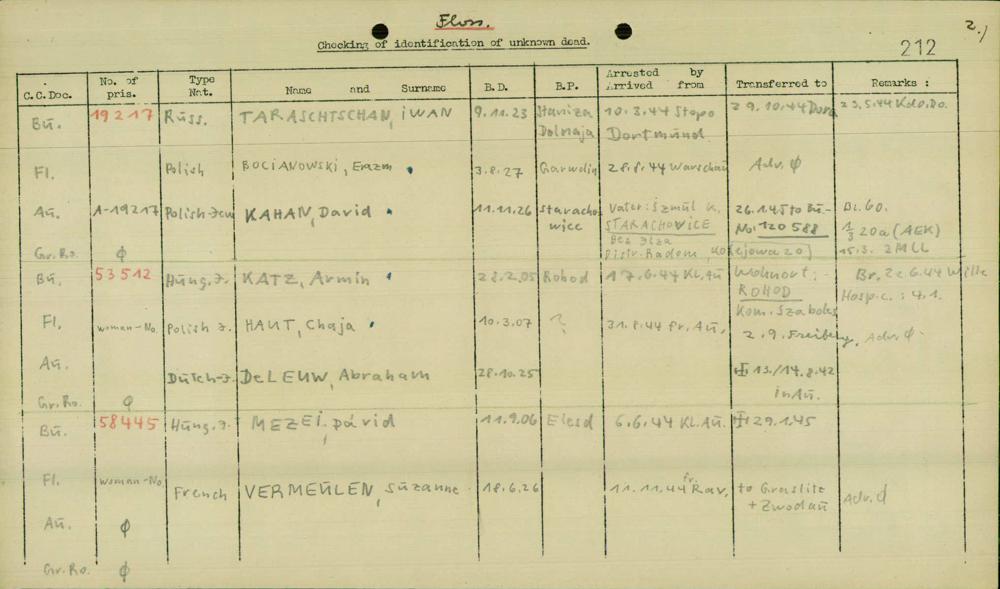 Floss.
2.)
Checking of identification of unknown dead.
212
C.C.Doc. No. of pris. Type Nat. Name and Surname B.D. B.P. Arrested by Arrived from Transferred to Remarks :
Bu. 19217 Russ. TARASCHTSCHAN, IWAN 9.11.23 Staniza Dolnaja 10.3.44 Stapo Dortmund 29.10.44 Dora 23.5.44 Kdo.Do.
Fl. Polish BOCIANOWSKI, Erazm 3.8.27 Garwolin 28.8.44 Warschau Adv. ϕ
Au. A-19217 Polish-Jew KAHAN, David 11.11.26 Starachowice Vater: Szmul K, STARACHOWICE Bez Ilza Distr. Radom, Kolejowa 20) 26.1.45 to Bu- No. 120588 Bl. 60. 1/3 20a (AEK) 15.3. 2MLL
Gr.Ro. ϕ
Bu. 53512 Hung.J. KATZ, Armin 28.2.05 Rohod 17.6.44 KL.Au Wohnort: - ROHOD Kom. Szabolcs Br. 22 6.44 Wille Hosp.c.: 4.1.
Fl. woman-No. Polish J. HAUT, Chaja 10.3.07 ? 31.8.44 fr. Au. 2.9. Freiberg, Adv. ϕ
Au. Dutch-J. De LEUW, Abraham 28.10.25 13./14.8.42 in Au.
Gr.Ro. ϕ
Bu. 58445 Hung.J. MEZEI, Dávid 11.9.06 Elesd 6.6.44 KL.Au. 29.1.45
Fl. woman-No French VERMEULEN, Suzanne 18.6.26 11.11.44 fr. Rav. to Graslitz + Zwodau Adv. ϕ
Au. ϕ
Gr.Ro. ϕ